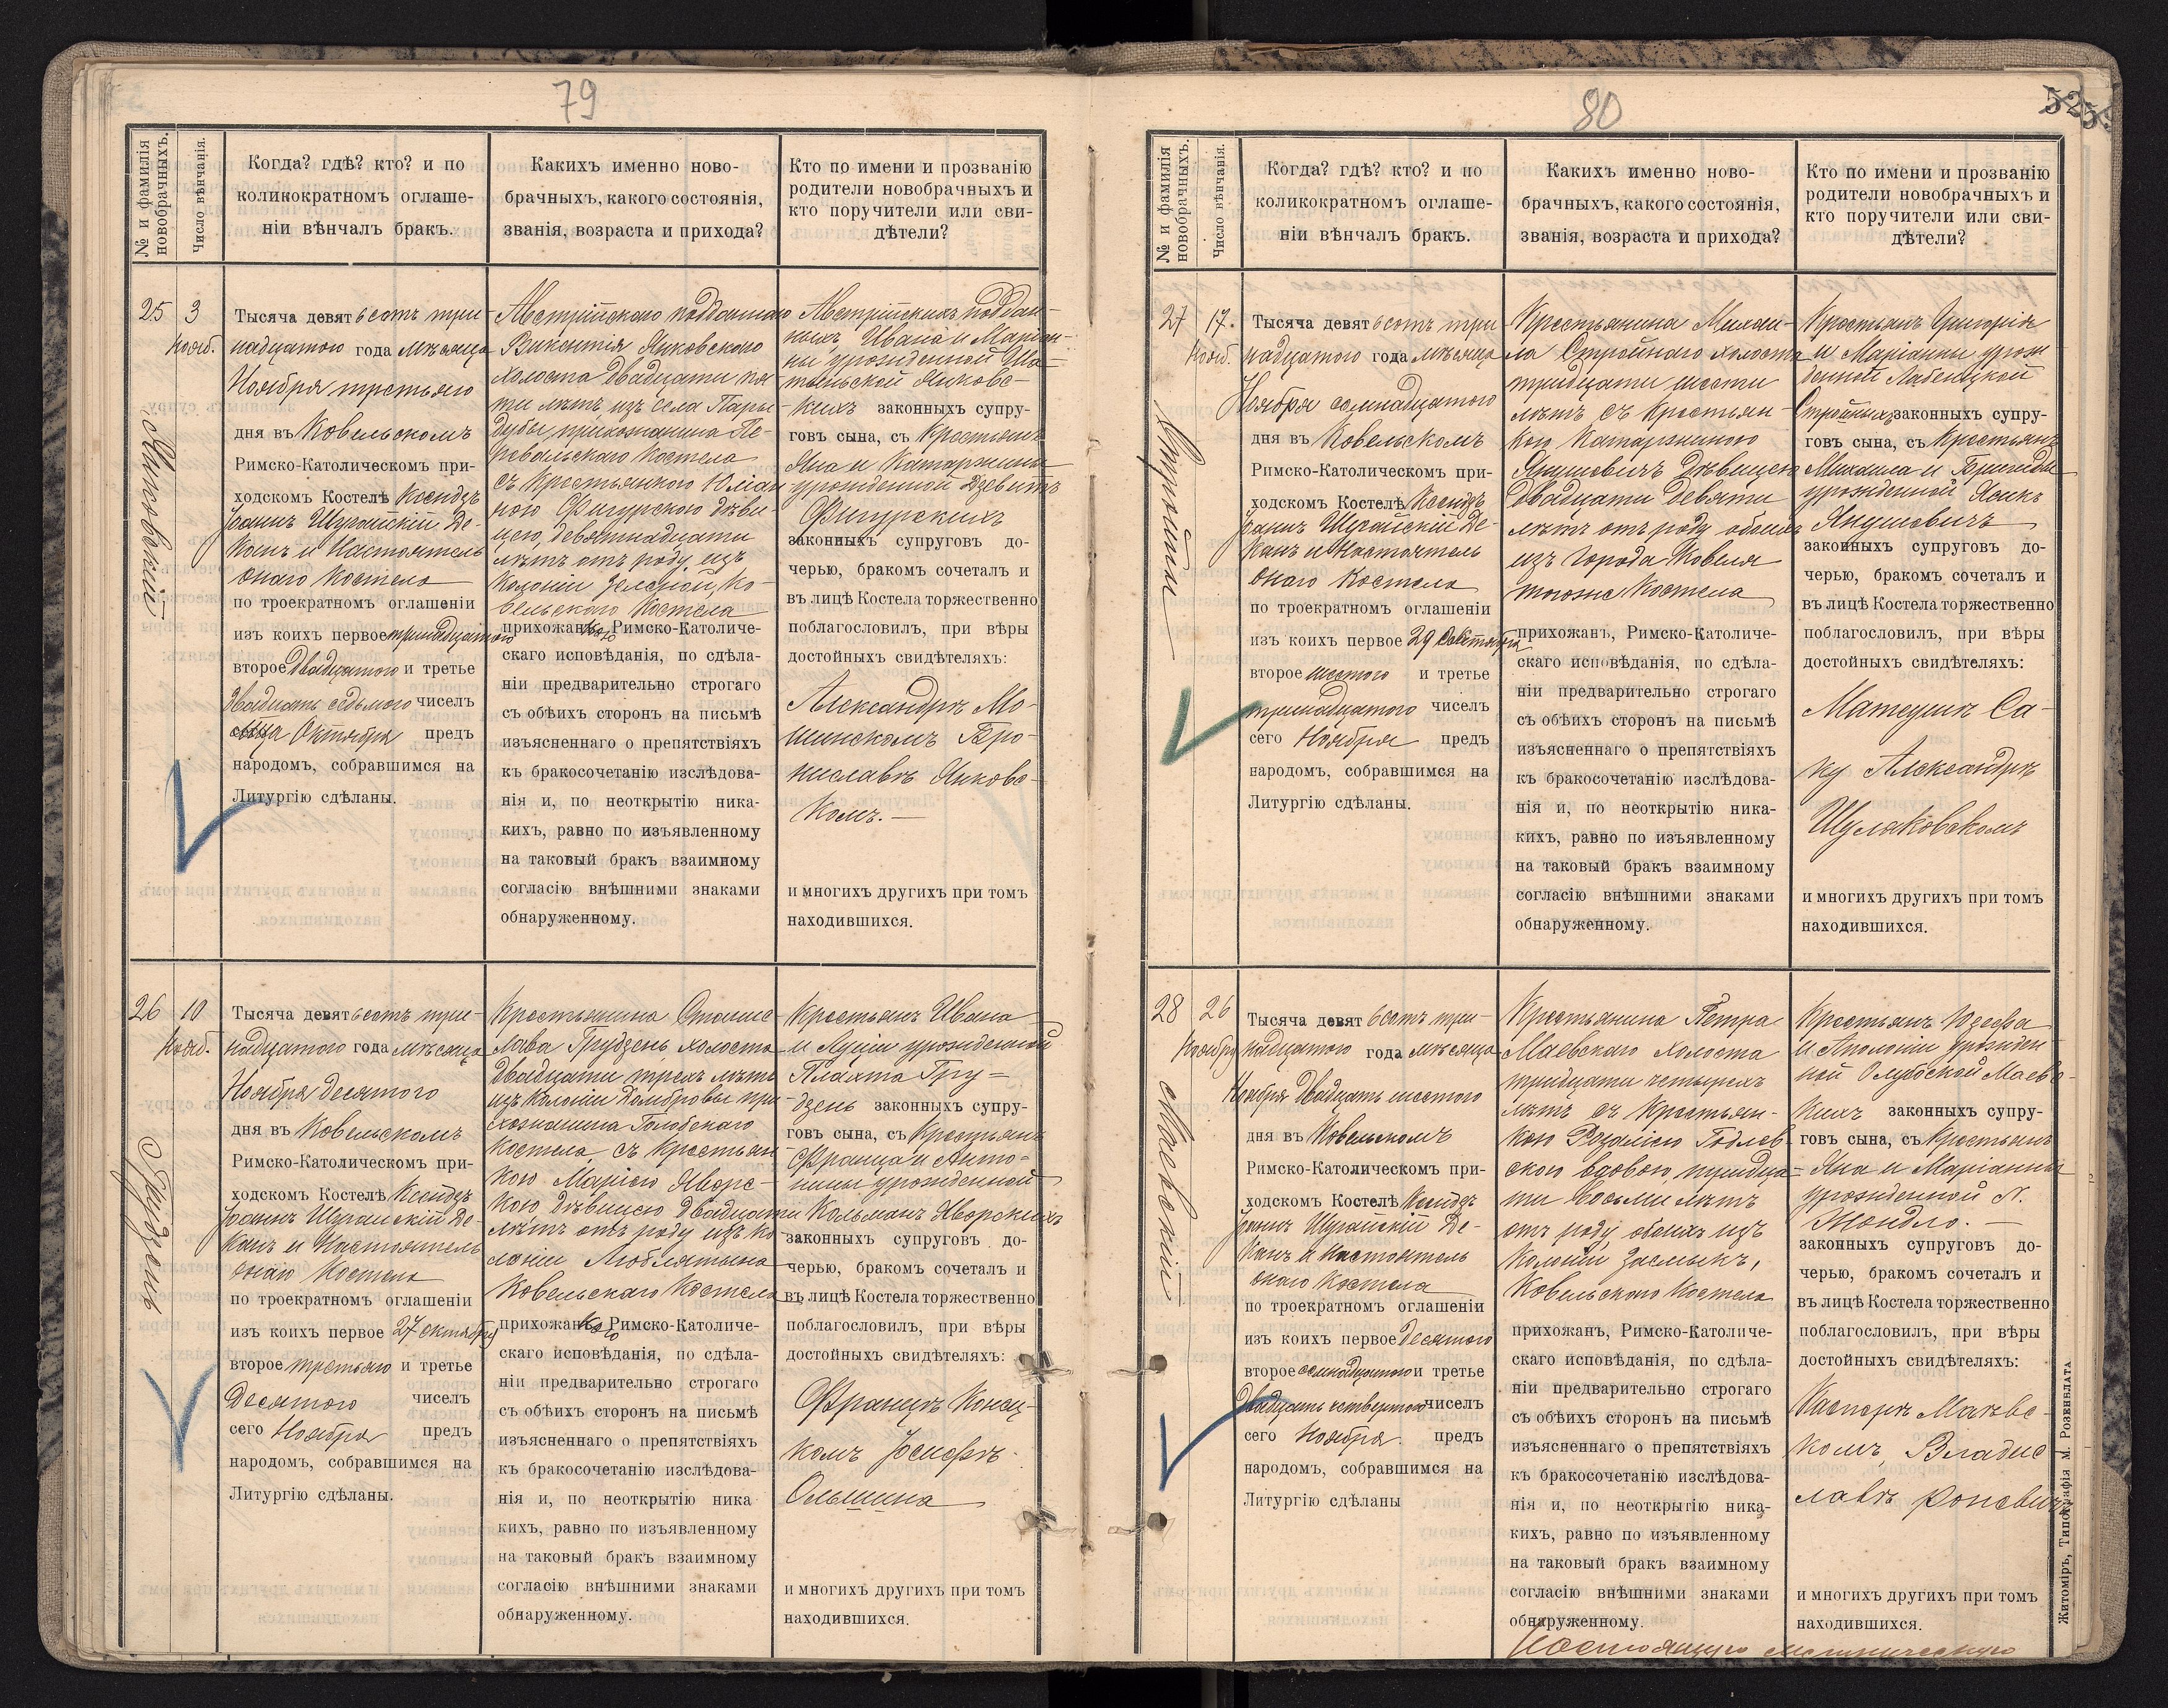 79
№ и фамилія новобрачныхъ.
Число вѣнчанія.
Когда? гдѣ? кто? и по
коликократномъ оглаше-
ніи вѣнчалъ бракъ.
Какихъ именно ново-
брачныхъ, какого состоянія,
званія, возраста и прихода?
Кто по имени и прозванію
родители новобрачныхъ и
кто поручители или сви-
дѣтели?
25
Янковскій
3
Нояб.
Тысяча девятьсотъ три-
надцатого года мѣсяца
Ноября третьяго
дня въ Ковельскомъ
Римско-Католическомъ при-
ходскомъ Костелѣ Ксендзъ
Іоаннъ Шуманскій Де-
канъ и Настоятель
онаго Костела
по троекратномъ оглашеніи
изъ коихъ первое тринадцатого
второе двадцатого и третье
двадцать седьмого чиселъ
Октября предъ
народомъ, собравшимся на
Литургію сдѣланы.
Австрійскаго подданнаго
Викентія Янковскаго
холоста двадцати пя-
ти лѣтъ изъ села Пары-
дубы, прихожанина
Костела
съ крестьянкою Юліан-
ною Фигурскою дѣви-
цею, девятнадцати
лѣтъ отъ роду, изъ
Колоніи Зеленой, Ко-
вельскаго Костела
прихожанъ, Римско-Католиче-
скаго исповѣданія, по сдѣла-
ніи предварительно строгаго
съ обѣихъ сторонъ на письмѣ
изъясненнаго о препятствіяхъ
къ бракосочетанію изслѣдова-
нія и, по неоткрытію ника-
кихъ, равно по изъявленному
на таковый бракъ взаимному
согласію внѣшними знаками
обнаруженному.
Австрійскихъ поддан-
ныхъ Ивана и Маріан-
ны урожденной
Янковс-
кихъ законныхъ супру-
говъ сына, съ Крестьянъ
Яна и Катаржины
урожденной
Фигурскихъ
законныхъ супруговъ до-
черью, бракомъ сочеталъ и
въ лицѣ Костела торжественно
поблагословилъ, при вѣры
достойныхъ свидѣтеляхъ:
Александрѣ Мо-
шинскомъ Бро-
ниславѣ Янковс-
комъ.
и многихъ другихъ при томъ
находившихся.
26
Грудзень
10
Нояб.
Тысяча девятьсотъ три-
надцатого года мѣсяца
Ноября десятого
дня въ Ковельскомъ
Римско-Католическомъ при-
ходскомъ Костелѣ Ксендзъ
Іоаннъ Шуманскій Де-
канъ и Настоятель
онаго Костела
по троекратномъ оглашеніи
изъ коихъ первое 27 октября
второе третьяго и третье
десятого чиселъ
сего Ноября предъ
народомъ, собравшимся на
Литургію сдѣланы.
Крестьянина Станис-
лава Грудзень, холоста
двадцати трехъ лѣтъ
изъ Колоніи Домбровы при-
хожанина Голобскаго
Костела, съ крестьян-
кою Маріею Яворс-
кою дѣвицею двадцати
лѣтъ отъ роду изъ ко-
лоніи Люблятына
Ковельскаго Костела
прихожанъ, Римско-Католиче-
скаго исповѣданія, по сдѣла-
ніи предварительно строгаго
съ обѣихъ сторонъ на письмѣ
изъясненнаго о препятствіяхъ
къ бракосочетанію изслѣдова-
нія и, по неоткрытію ника
кихъ, равно по изъявленному
на таковый бракъ взаимному
согласію внѣшними знаками
обнаруженному.
Крестьянъ Ивана
и Луціи урожденной
Плахта Гру-
дзень законныхъ супру-
говъ сына, съ Крестьянъ
Франца и Анто-
нины урожденной
Кольманъ Яворскихъ
законныхъ супруговъ до-
черью, бракомъ сочеталъ и
въ лицѣ Костела торжественно
поблагословилъ, при вѣры
достойныхъ свидѣтеляхъ:
Францѣ
комъ Іосифѣ
Ольшина
и многихъ другихъ при томъ
находившихся.
80
52
№ и фамилія новобрачныхъ.
Число вѣнчанія.
Когда? гдѣ? кто? и по
коликократномъ оглаше-
ніи вѣнчалъ бракъ.
Какихъ именно ново-
брачныхъ, какого состоянія,
званія, возраста и прихода?
Кто по имени и прозванію
родители новобрачныхъ и
кто поручители или сви-
дѣтели?
27
17.
Нояб.
Тысяча девятьсотъ три
надцатого года мѣсяца
Ноября семнадцатого
дня въ Ковельскомъ
Римско-Католическомъ при-
ходскомъ Костелѣ Ксендзъ
Іоаннъ Шуманскій Де-
канъ и Настоятель
онаго Костела
по троекратномъ оглашеніи
изъ коихъ первое 29
второе шестого и третье
тринадцатого чиселъ
сего Ноября предъ
народомъ, собравшимся на
Литургію сдѣланы.
Крестьянина Михаи-
ла Стройнаго холоста
тридцати шести
лѣтъ съ Крестьян-
кою Катаржиною
Янушевичъ дѣвицею
двадцати девяти
лѣтъ отъ роду обоихъ
изъ города Ковеля
тогоже Костела
прихожанъ, Римско-Католиче-
скаго исповѣданія, по сдѣла-
ніи предварительно строгаго
съ обѣихъ сторонъ на письмѣ
изъясненнаго о препятствіяхъ
къ бракосочетанію изслѣдова-
нія и, по неоткрытію ника-
кихъ, равно по изъявленному
на таковый бракъ взаимному
согласію внѣшними знаками
обнаруженному.
Крестьянъ Григорія
и Маріанны урож
денной Лабенцкой
Стройныхъ законныхъ супру-
говъ сына, съ Крестьянъ
Михаила и Бригиды
урожденной
Янушевичъ
законныхъ супруговъ до-
черью, бракомъ сочеталъ и
въ лицѣ Костела торжественно
поблагословилъ, при вѣры
достойныхъ свидѣтеляхъ:
Матеушѣ Са-
ку Александрѣ
Шуляковскомъ
и многихъ другихъ при томъ
находившихся.
28
Маевскій
26
Ноября
Тысяча девятьсотъ три-
надцатого года мѣсяца
Ноября двадцать шестого
дня въ Ковельскомъ
Римско-Католическомъ при-
ходскомъ Костелѣ Ксендзъ
Іоаннъ Шуманскій Де-
канъ и Настоятель
онаго Костела
по троекратномъ оглашеніи
изъ коихъ первое десятого
второе семнадцатого и третье
двадцать четвертого чиселъ
сего Ноября предъ
народомъ, собравшимся на
Литургію сдѣланы
Крестьянина Петра
Маевскаго холоста
тридцати четырехъ
лѣтъ съ Крестьян-
кою Розаліею Годлев-
скою вдовою, тридца-
ти восьми лѣтъ
отъ роду, обоихъ изъ
Колоніи Засмыкъ,
Ковельскаго Костела
прихожанъ, Римско-Католиче-
скаго исповѣданія, по сдѣла-
ніи предварительно строгаго
съ обѣихъ сторонъ на письмѣ
изъясненнаго о препятствіяхъ
къ бракосочетанію изслѣдова-
нія и, по неоткрытію ника-
кихъ, равно по изъявленному
на таковый бракъ взаимному
согласію внѣшними знаками
обнаруженному.
Крестьянъ Юзефа
и Аполоніи урожден-
ной Олубской Маевс-
кихъ законныхъ супру-
говъ сына, съ Крестьянъ
Яна и Маріанны
урожденной N.
Жондло.
законныхъ супруговъ до-
черью, бракомъ сочеталъ и
въ лицѣ Костела торжественно
поблагословилъ, при вѣры
достойныхъ свидѣтеляхъ:
Каспорѣ Маевс-
комъ, Владис
лавѣ
и многихъ другихъ при томъ
находившихся.
Житоміръ, Типографія М. Розенблата